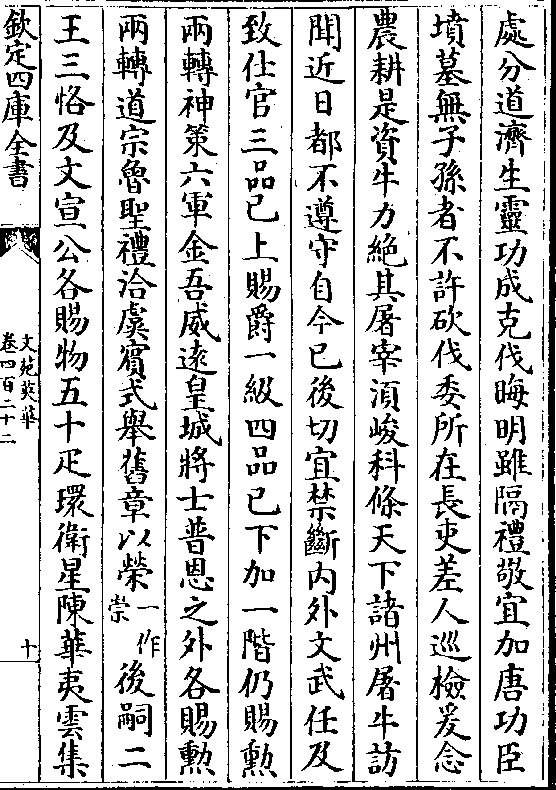 處分道濟生靈功成克伐晦明雖隔禮敬宜加唐功臣
墳墓無子孫者不許砍伐委所在長吏差人巡檢爰念
農耕是資牛力絶其屠宰湏峻科條天下諸州屠牛訪
聞近日都不遵守自今已後切宜禁斷内外文武任及
致仕官三品已上賜爵一級四品已下加一階仍賜勲
兩轉神策六軍金吾威逺皇城將士普恩之外各賜勲
兩轉道宗魯聖禮洽虞賓式舉舊章以榮一作崇後嗣二
王三恪及文宣公各賜物五十疋環衛星陳華夷雲集
欽定四庫全書
文苑英華
卷四百二十二
十